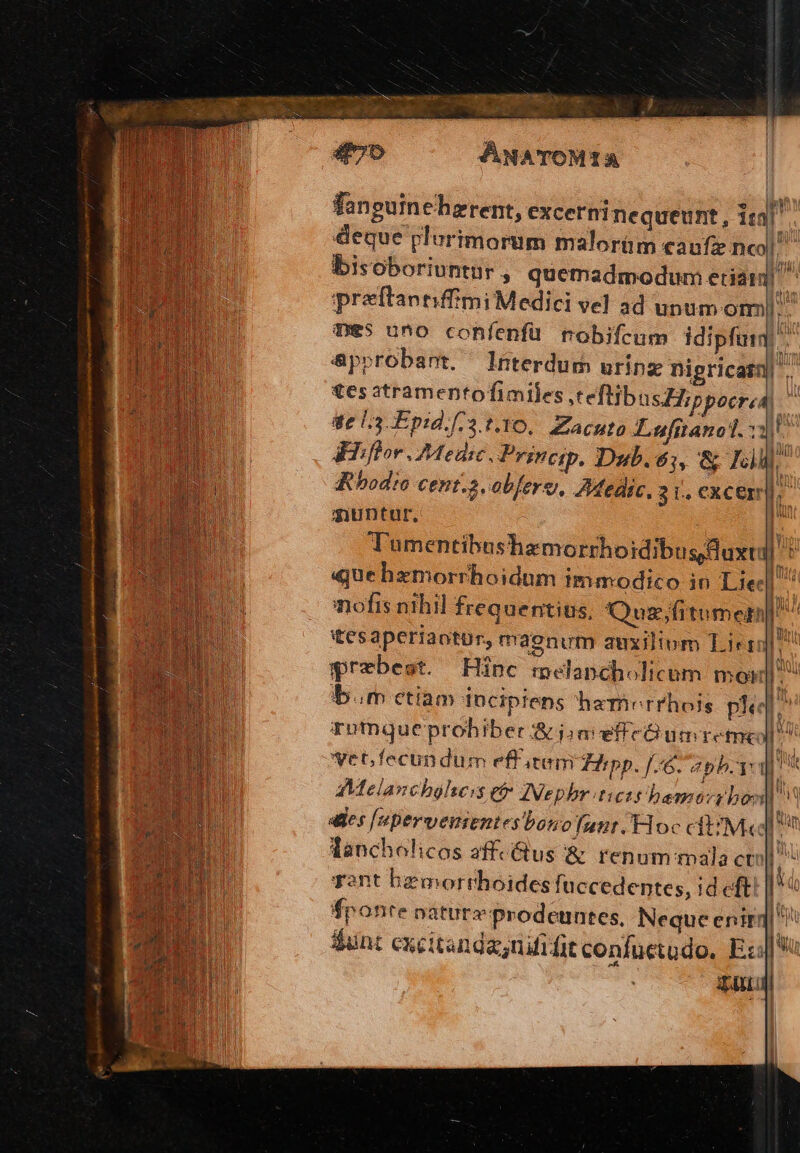 470 ANATOMIA
ſanguinehærent, excerninequeunt,
deque plurimorum malorum cauſæ
bisoboriuntur, quemadmodum etiam
præſtantiſſimi Medici vel ad unum
nes uno conſenſu nobiſcum idipſum
approbant. Interdum urinæ
tesatramentoſimiles, teſtibus Hippocra
te l.3. Epid. ſ.3.t.10. Zacuto Luſitano l.
Hiſtor. Medic. Princip. Dub. 63, &
Rhodio cent.3. obſerv. Medic. 31.
nuntur.
Tumentibushæmorrhoidibus, fluxu
que hæmorrhoidum immodico in Lie
noſis nihil frequentius. Quæ, ſitumen
tesaperiantur, magnum auxilium
præbeat. Hinc melancholicum
bum etiam incipiens hæmorrhois
rumque prohibet & jam effectum
vet, ſecundum effatum Hipp. ſ.6. aph.
Melancholicis & Nephriticis
des ſupervenientes bono ſunt. Hoc eſt: Me
lancholicos affectus & renum mala
rant hæmorrhoides ſuccedentes, id eſt:
ſponte naturæ prodeuntes. Neque enim
ſunt excitandæ, niſi ſit conſuetudo.